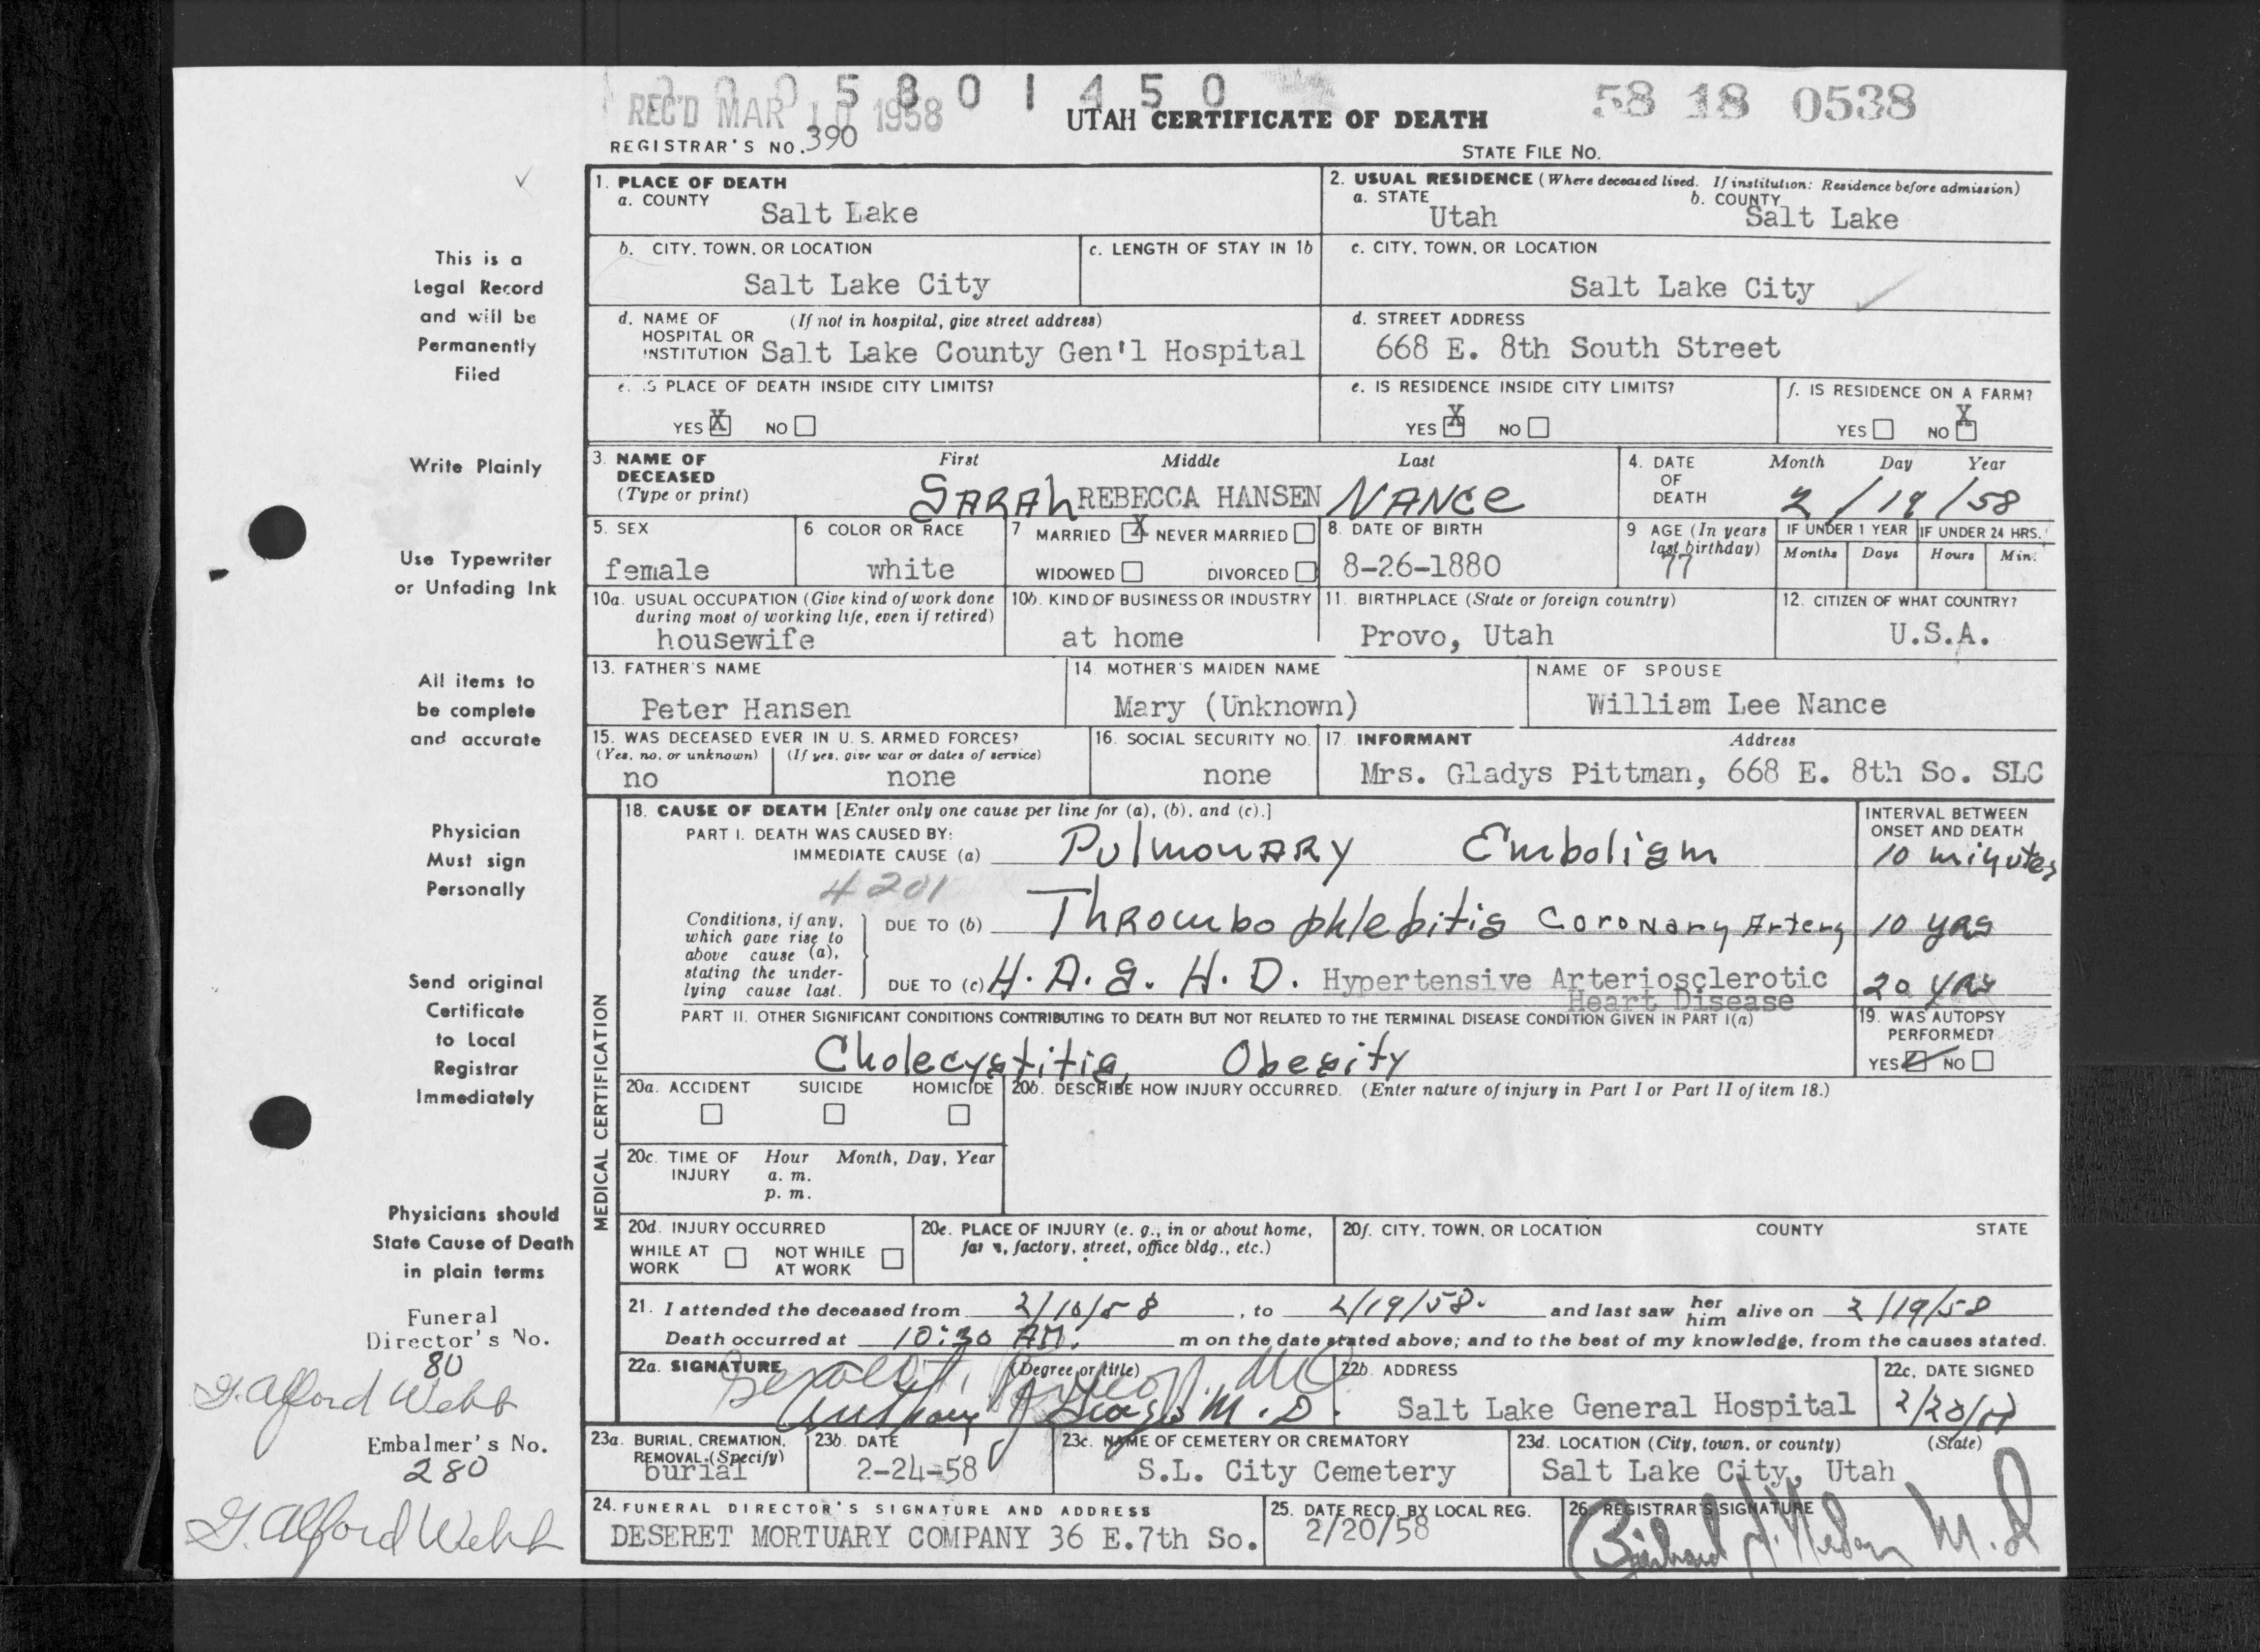 0 0 0 5 8 0 1 4 5 0
REC'D MAR 10 1958
58 18 0538
UTAH CERTIFICATE OF DEATH
REGISTRAR'S NO. 390
STATE FILE NO.
This is a
Legal Record
and will be
Permanently
Filed
Write Plainly
Use Typewriter
or Unfading Ink
All items to
be complete
and accurate
Physician
Must sign
Personally
Send original
Certificate
to Local
Registrar
Immediately
Physicians should
State Cause of Death
in plain terms
Funeral
Director's No.
80
G. Alford Webb
Embalmer's No.
280
G. Alford Webb
1. PLACE OF DEATH
a. COUNTY Salt Lake
2. USUAL RESIDENCE (Where deceased lived. If institution: Residence before admission)
a. STATE Utah b. COUNTY Salt Lake
b. CITY, TOWN, OR LOCATION Salt Lake City
c. LENGTH OF STAY IN 1b
c. CITY, TOWN, OR LOCATION Salt Lake City
d. NAME OF (If not in hospital, give street address)
HOSPITAL OR
INSTITUTION Salt Lake County Gen'l Hospital
d. STREET ADDRESS
668 E. 8th South Street
e. IS PLACE OF DEATH INSIDE CITY LIMITS?
YES X NO
e. IS RESIDENCE INSIDE CITY LIMITS?
YES X NO
f. IS RESIDENCE ON A FARM?
YES NO X
3. NAME OF DECEASED (Type or print)
First Middle Last
SARAH REBECCA HANSEN NANCE
4. DATE OF DEATH Month Day Year
2/19/58
5. SEX female
6 COLOR OR RACE white
7 MARRIED X NEVER MARRIED
WIDOWED DIVORCED
8. DATE OF BIRTH 8-26-1880
9 AGE (In years last birthday) 77
IF UNDER 1 YEAR Months Days
IF UNDER 24 HRS. Hours Min.
10a. USUAL OCCUPATION (Give kind of work done during most of working life, even if retired)
housewife
10b. KIND OF BUSINESS OR INDUSTRY at home
11. BIRTHPLACE (State or foreign country) Provo, Utah
12. CITIZEN OF WHAT COUNTRY? U.S.A.
13. FATHER'S NAME Peter Hansen
14. MOTHER'S MAIDEN NAME Mary (Unknown)
NAME OF SPOUSE William Lee Nance
15. WAS DECEASED EVER IN U. S. ARMED FORCES?
(Yes, no, or unknown) (If yes, give war or dates of service)
no none
16. SOCIAL SECURITY NO. none
17. INFORMANT Address
Mrs. Gladys Pittman, 668 E. 8th So. SLC
MEDICAL CERTIFICATION
18. CAUSE OF DEATH [Enter only one cause per line for (a), (b), and (c).]
INTERVAL BETWEEN ONSET AND DEATH
PART I. DEATH WAS CAUSED BY:
IMMEDIATE CAUSE (a) Pulmonary Embolism 10 minutes
4201
Conditions, if any, which gave rise to above cause (a), stating the underlying cause last.
DUE TO (b) Thrombophlebitis Coronary Artery 10 yrs
DUE TO (c) H. A. S. H. D. Hypertensive Arteriosclerotic Heart Disease 20 yrs
PART II. OTHER SIGNIFICANT CONDITIONS CONTRIBUTING TO DEATH BUT NOT RELATED TO THE TERMINAL DISEASE CONDITION GIVEN IN PART I(a)
Cholecystitis, Obesity
19. WAS AUTOPSY PERFORMED?
YES NO
20a. ACCIDENT SUICIDE HOMICIDE
20b. DESCRIBE HOW INJURY OCCURRED. (Enter nature of injury in Part I or Part II of item 18.)
20c. TIME OF INJURY Hour Month, Day, Year
a. m.
p. m.
20d. INJURY OCCURRED
WHILE AT WORK NOT WHILE AT WORK
20e. PLACE OF INJURY (e. g., in or about home, farm, factory, street, office bldg., etc.)
20f. CITY, TOWN, OR LOCATION COUNTY STATE
21. I attended the deceased from 2/10/58, to 2/19/58. and last saw her him alive on 2/19/58
Death occurred at 10:30 AM. m on the date stated above; and to the best of my knowledge, from the causes stated.
22a. SIGNATURE (Degree or title)
Anthony J M.D.
22b. ADDRESS Salt Lake General Hospital
22c. DATE SIGNED 2/20/58
23a. BURIAL, CREMATION, REMOVAL (Specify) burial
23b. DATE 2-24-58
23c. NAME OF CEMETERY OR CREMATORY S.L. City Cemetery
23d. LOCATION (City, town, or county) (State)
Salt Lake City, Utah
24. FUNERAL DIRECTOR'S SIGNATURE AND ADDRESS
DESERET MORTUARY COMPANY 36 E.7th So.
25. DATE RECD. BY LOCAL REG. 2/20/58
26. REGISTRAR'S SIGNATURE
M.D